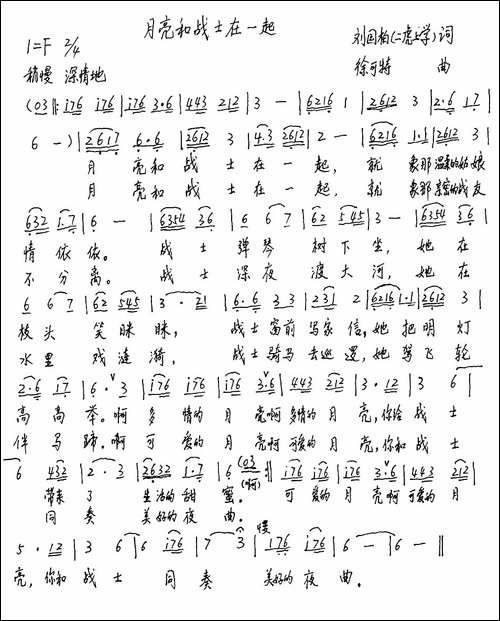 月亮和战士在一起
1=F 2/4
刘国柏(二虎上学)词
稍慢 深情地
徐可特 曲
(03‖: i76 i76 | i76 3·6 | 443 212 | 3 — | 6216 1 | 2612 3 | 2·6 17 |
6 —) | 2617 6·6 | 2612 3 | 4·3 2612 | 2 — | 6216 1·1 | 2612 3 |
月 亮和 战 士在一 起, 就 象那温柔的姑娘
月 亮和 战 士在一 起, 就 象那亲密的战友
632 1·7 | 6 — | 6354 36 | 6 6 7 | 62 545 | 3 — | 6354 36 |
情 依依。 战 士 弹琴 树下坐, 她 在
不 分离。 战 士 深夜 渡大河, 她 在
6 6 7 | 62 545 | 3 · 21 | 6·6 3 3 | 231 2 | 6216 1·1 | 2612 3 |
枝头 笑眯眯, 战士窗前 写家信,她 把明 灯
水里 戏涟漪, 战士骑马 去巡逻,她 驾飞 轮
2·6 17 | 6 · 3 | i76 i76 | i76 3·6 | 443 212 | 3 · 12 | 3 6 |
高 高 举。啊 多 情的 月 亮啊 多情的 月 亮,你给 战 士
伴 马 蹄。啊 可 爱的 月 亮啊 可爱的 月 亮,你和 战 士
6 432 | 2 · 3 | 2632 1·7 | 6 (03 :‖ i76 i76 | i76 3·6 | 443 212 |
带来 了 生活的甜 蜜。 (啊) 可 爱的 月 亮啊 可爱的 月
同 奏 美好的夜 曲。
慢
5 · 12 | 3 6 | 6 i76 | 7 3 | i76 i76 | 6 — | 6 — ‖
亮, 你和 战 士 同 奏 美好的 夜 曲。